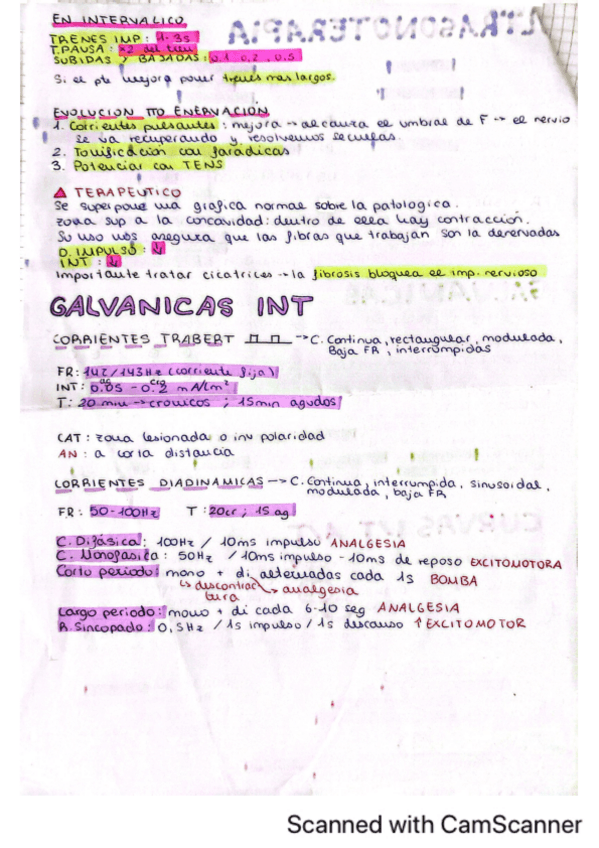 EN INTERVALICO
TRENES IMP: 1-3s
T.PAUSA: x2 del tren
SUBIDAS Y BAJADAS: 0.1 0.2, 0.5
Si el pte mejora poner trenes mas largos.
EVOLUCION TTO ENERVACIÓN
1. Corrientes pulsantes: mejora → alcanza el umbral de F → el nervio
se va recuperando y resolvemos secuelas.
2. Tonificación con farádicas
3. Potenciar con TENS
△ TERAPEUTICO
Se superpone una grafica normal sobre la patologica.
zona sup a la concavidad: dentro de ella hay contracción.
Su uso nos asegura que las fibras que trabajan son la denervadas
D. IMPULSO: ↓
INT: ↓
Importante tratar cicatrices → la fibrosis bloquea el imp. nervioso
GALVANICAS INT
CORRIENTES TRABERT → C. Continua, rectangular, modulada,
Baja FR, interrumpidas
FR: 142/143Hz (corriente fija)
ag cro
INT: 0.05 - 0.2 mA/cm²
T: 20 min → cronicos ; 15min agudos
CAT: zona lesionada o inv polaridad
AN: a corta distancia
CORRIENTES DIADINAMICAS → C. Continua, interrumpida, sinusoidal,
modulada, baja FR
FR: 50-100Hz T: 20cr ; 15 ag
C. Difásica: 100Hz / 10ms impulso ANALGESIA
C. Monofasica: 50Hz / 10ms impulso - 10ms de reposo EXCITOMOTORA
Corto periodo: mono + di alternadas cada 1s BOMBA
↳ descontrac ↳ analgesia
tura
Largo periodo: mono + di cada 6-10 seg ANALGESIA
R. Sincopado: 0,5Hz / 1s impulso / 1s descanso ↑EXCITOMOTOR
Scanned with CamScanner